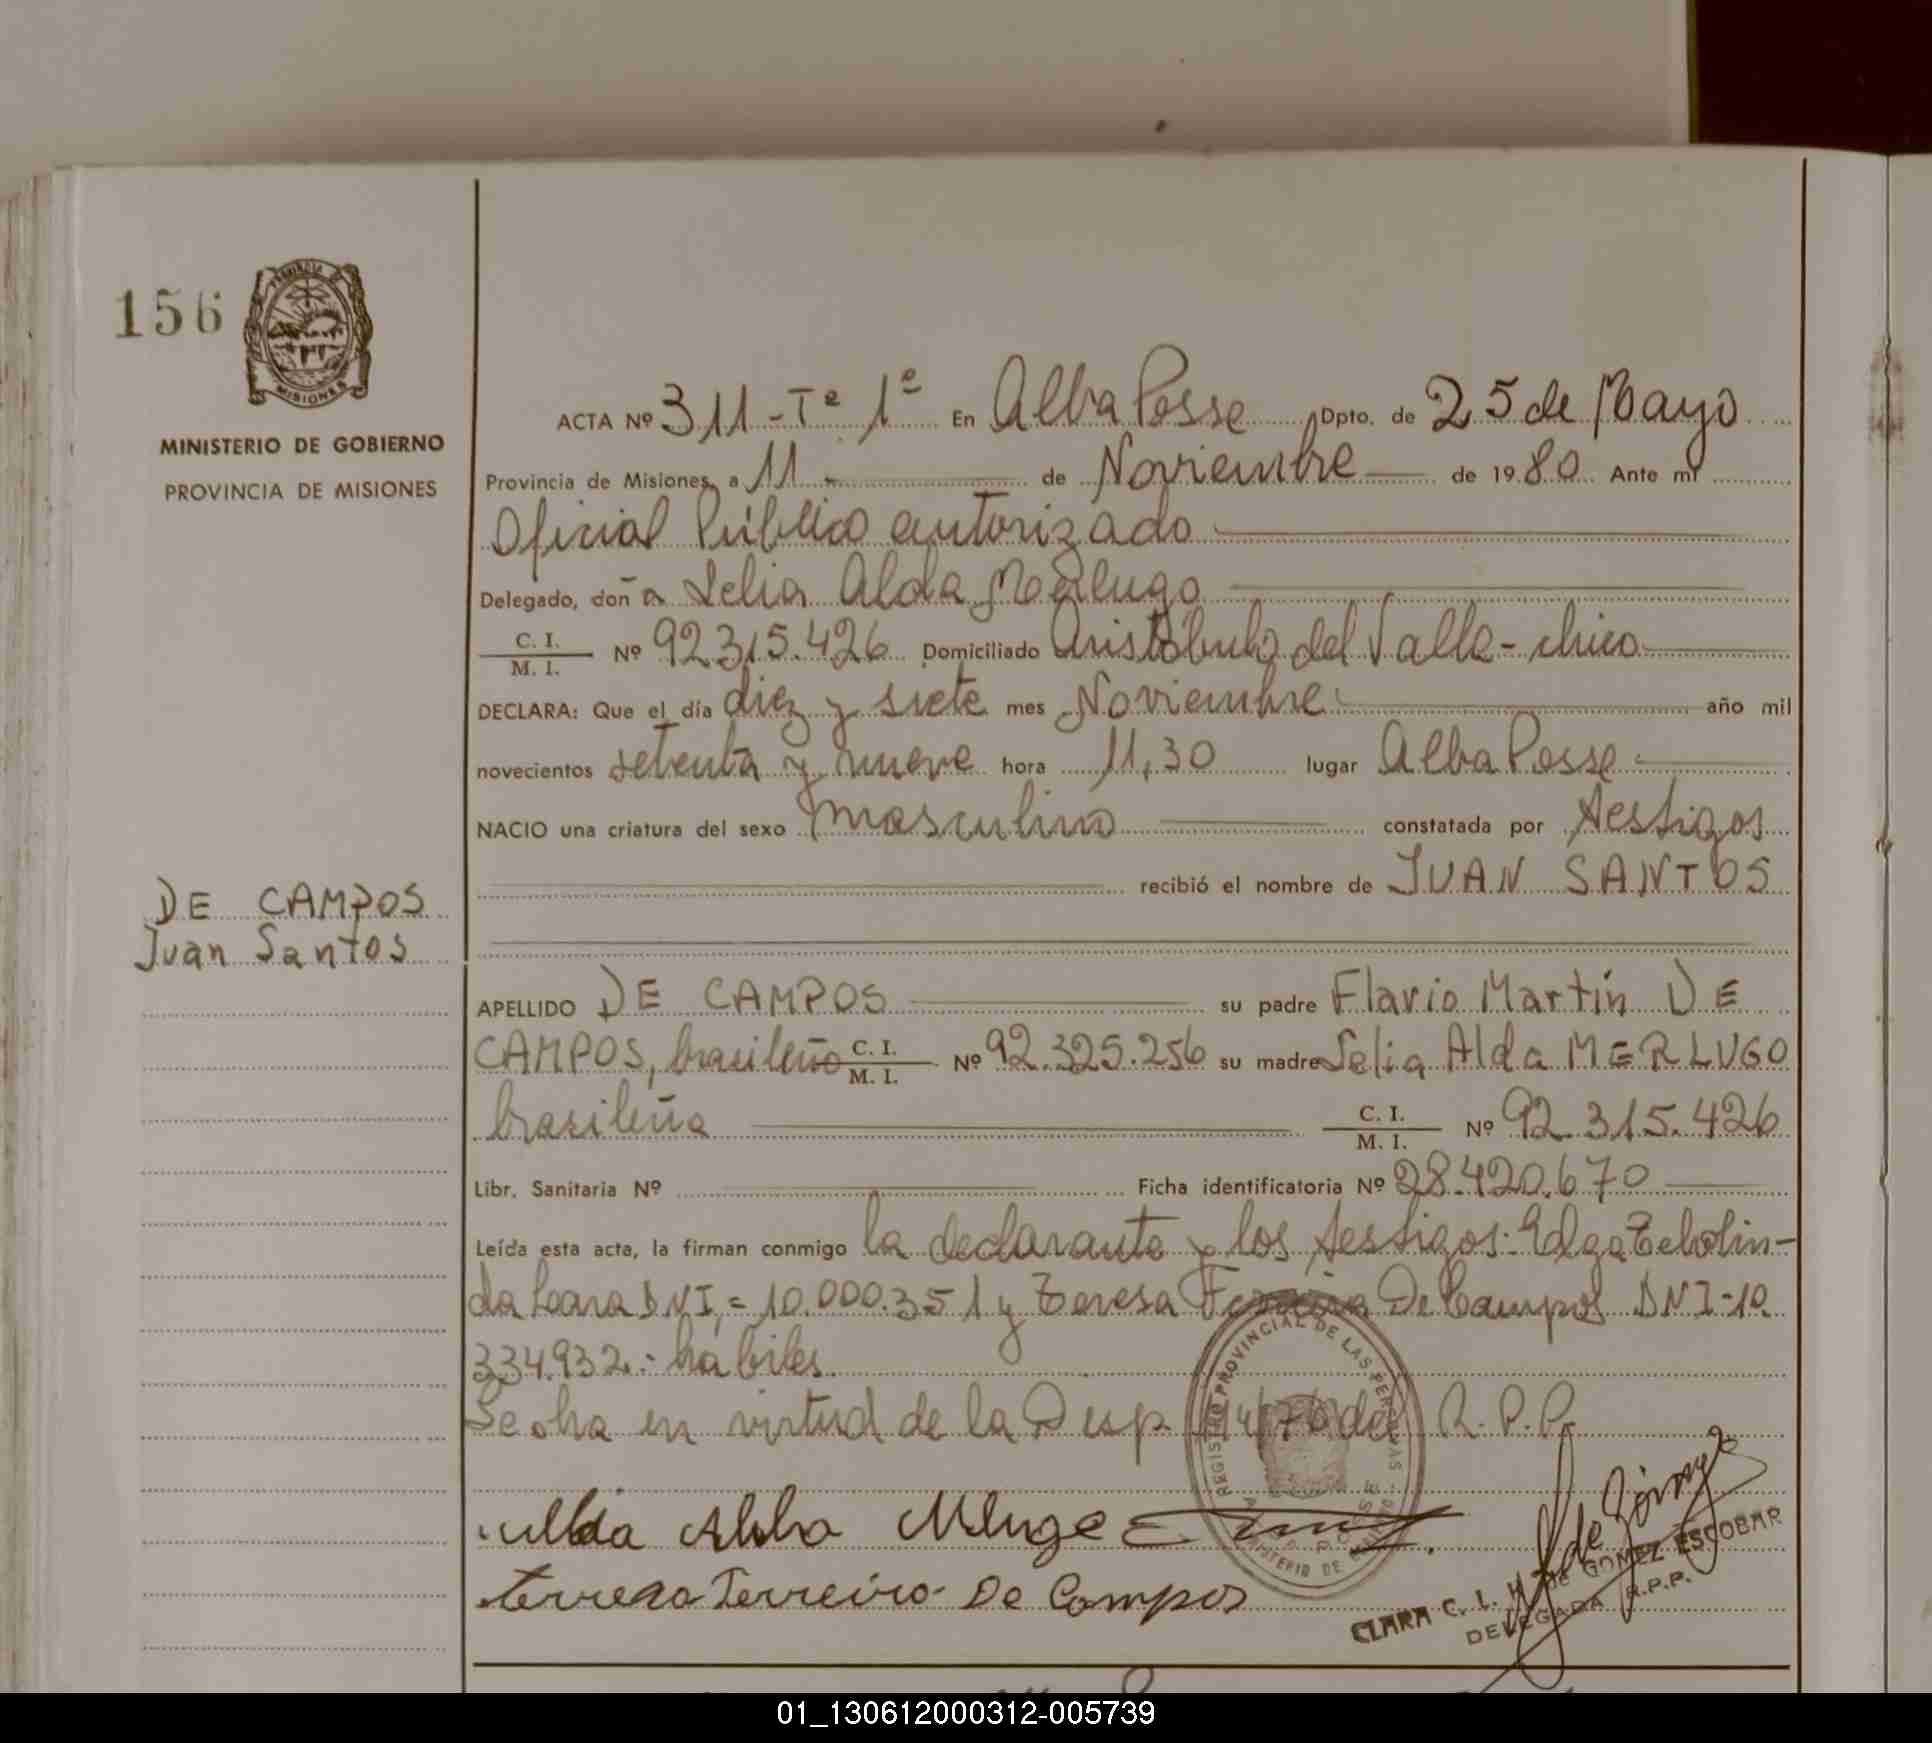 156
MISIONES
MINISTERIO DE GOBIERNO
PROVINCIA DE MISIONES
ACTA Nº 311 - Tº 1º En Alba Posse Dpto. de 25 de Mayo
Provincia de Misiones, a 11 de Noviembre de 1980 Ante mí
Oficial Público autorizado
Delegado, doña Selia Alda Merlugo
C. I.
M. I. Nº 92.315.426 Domiciliado Aristóbulo del Valle - chico
DECLARA: Que el día diez y siete mes Noviembre año mil
novecientos setenta y nueve hora 11,30 lugar Alba Posse
NACIO una criatura del sexo masculino constatada por testigos
recibió el nombre de JUAN SANTOS
DE CAMPOS
Juan Santos
APELLIDO DE CAMPOS su padre Flavio Martín DE
CAMPOS, brasileño C. I. M. I. Nº 92.325.256 su madre Selia Alda MERLUGO
brasileña C. I. M. I. Nº 92.315.426
Libr. Sanitaria Nº Ficha identificatoria Nº 28.420.670
Leída esta acta, la firman conmigo la declarante y los testigos: Telolin-
da DNI = 10.000.351 y Teresa Ferreira De Campos DNI - 10.
334.932.- hábiles.
Se en virtud de la Disp. del R.P.P.
REGISTRO PROVINCIAL DE LAS PERSONAS
Terresa Ferreiro De Campos
CLARA C. L. H. de GOMEZ ESCOBAR
DELEGADA R.P.P.
01_130612000312-005739